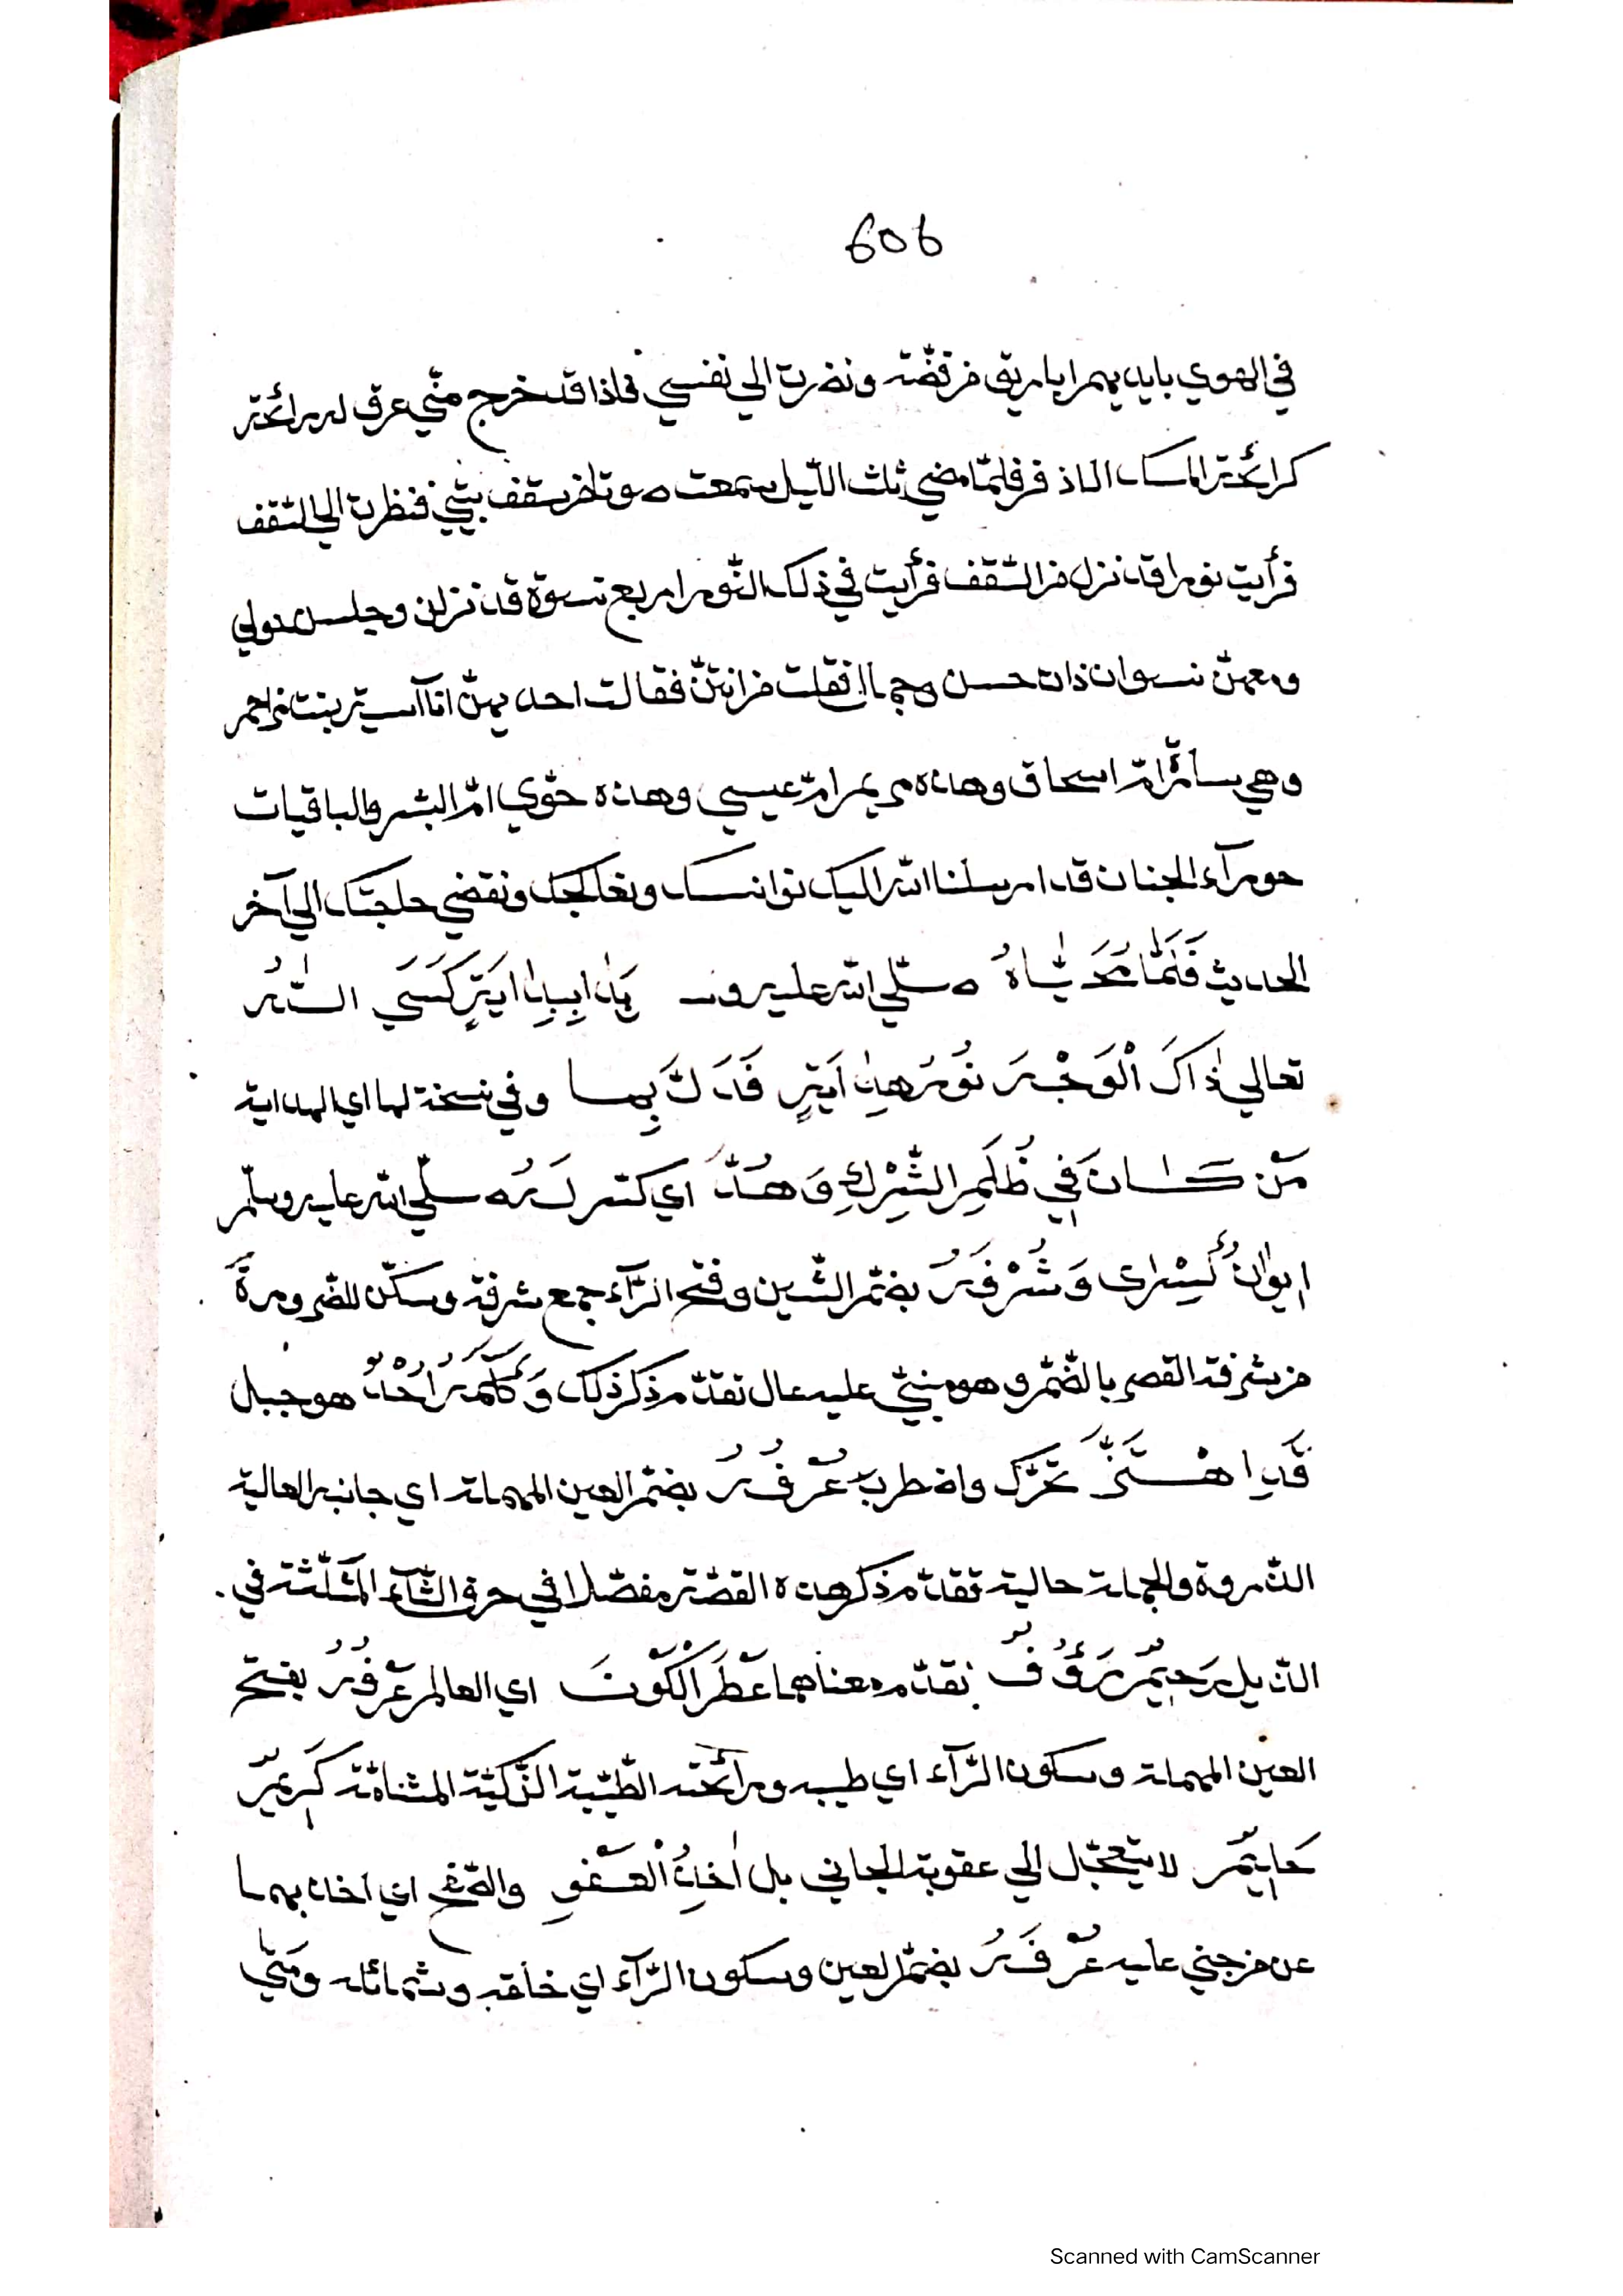 606
في الهوي بايديهم اباريق من فضّة ونضرت الي نفسي فاذا قد خرج منّي عرق له رائحة
كرائحة المسك الاذفر فلمّا مضي ثلث اللّيل سمعت صوتا من سقف بيتي فنظرت الي السّقف
فرأيت نورا قد نزل من السّقف فرأيت في ذلك النّور اربع نسوة قد نزلن وجلسن حولي
ومعهنّ نسوان ذات حسن وجمال فقلت من انتنّ فقالت احديهنّ انا آسية بنت مزاحم
وهي سارّة امّ اسحاق وهذه مريم امّ عيسي وهذه حوّي امّ البشر والباقيات
حورآء الجنان قد ارسلنا الله اليك نوانسك ونعالجك ونقضي حاجتك الي آخر
الحديث فَلَمَّا مُحَيَّاهُ صلّي الله عليه و بَدَا بِبِدَايَةٍ كَسَي اللّٰهُ
تعالي ذَاكَ الْوَجْهَ نُورُ هِدَايَةٍ فَدَلَّ بِهَا وفي نسخة لها اي الهداية
مَنْ كَانَ فِي ظُلَمِ الشِّرْكِ وَهُدَّ اي كسر لَهُ صلّي الله عليه وسلّم
اِيوَانُ كِسْرَى وَشُرْفَهُ بضمّ الشّين وفتح الرّآء جمع شرفة وسكّن للضّرورة
من شرفة القصر بالضّمّ وهو مبنيّ عليه عال تقدّم ذكر ذلك وَكَلَّمَهُ اُحُدٌ هو جبل
قَدِ اهْتَزَّ تحرّك واضطرب عُرْفُهُ بضمّ العين المهملة اي جانبه العالية
الذّروة والجملة حالية تقدّم ذكر هذه القصّة مفصّلا في حرف الثّآء المثلّثة في
الذّيل رَحِيمٌ رَؤُوفٌ تقدّم معناهما عَطَّرَ الْكَوْنَ اي العالم عَرْفُهُ بفتح
العين المهملة وسكون الرّآء اي طيبه ورائحته الطّيّبة الزّكيّة كَرِيمٌ
حَلِيمٌ لا يتعجّل الي عقوبة الجاني بل اٰخِذُ الْعَفْوِ والصّفح اي اخذ بهما
عن من جني عليه عُرْفُهُ بضمّ العين وسكون الرّآء اي خلقه وشمائله وَمَتَي
Scanned with CamScanner